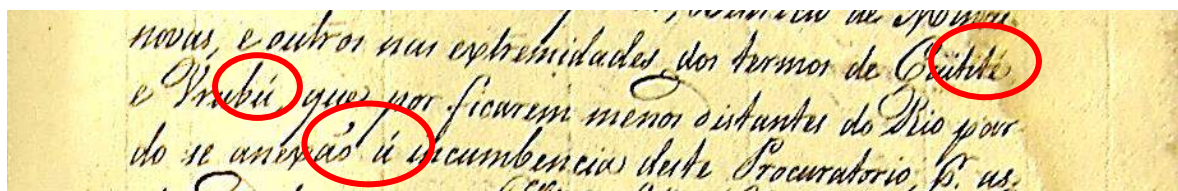 de Minas
novas, e outros nas extremidades dos termos de Caitité
e Vrubú, que por ficarem menos distantes do Rio par
do se anexão á incumbencia deste Procuratorio, p. as